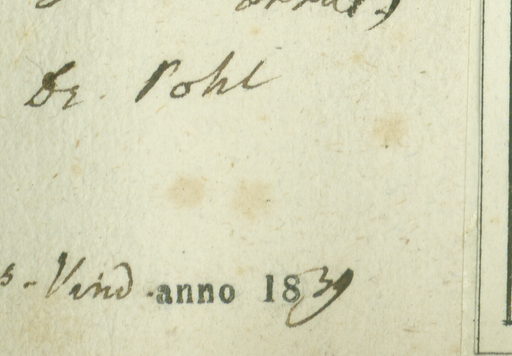 De. Pohl
s. Vind. anno 1839